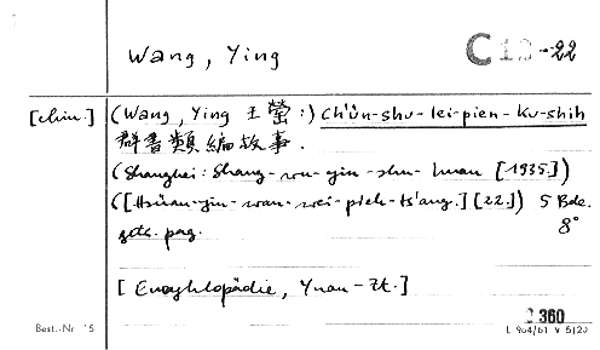 Wang, Ying C 13-22
[chin.] (Wang, Ying 王螢:) Ch'ün-shu-lei-pien-ku-shih
群書類編故事.
(Shanghai: Shang-wu-yin-shu-kuan [1935.])
([Hsüan-yin-wan-wei-pieh-ts'ang.] [22.]) 5 Bde.
getr. pag. 8°
[Enzyklopädie, Yuan-Zt.]
360
Best.-Nr 15 L 904/61 V 5/20